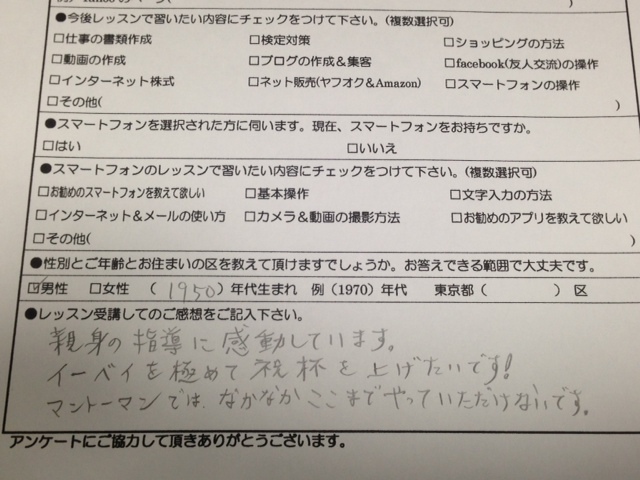 ●今後レッスンで習いたい内容にチェックをつけて下さい。(複数選択可)
□仕事の書類作成 □検定対策 □ショッピングの方法
□動画の作成 □ブログの作成＆集客 □facebook(友人交流)の操作
□インターネット株式 □ネット販売(ヤフオク＆Amazon) □スマートフォンの操作
□その他( )
●スマートフォンを選択された方に伺います。現在、スマートフォンをお持ちですか。
□はい □いいえ
●スマートフォンのレッスンで習いたい内容にチェックをつけて下さい。(複数選択可)
□お勧めのスマートフォンを教えて欲しい □基本操作 □文字入力の方法
□インターネット＆メールの使い方 □カメラ＆動画の撮影方法 □お勧めのアプリを教えて欲しい
□その他( )
●性別とご年齢とお住まいの区を教えて頂けますでしょうか。お答えできる範囲で大丈夫です。
☑男性 □女性 ( 1950 ) 年代生まれ 例 (1970) 年代 東京都 ( ) 区
●レッスン受講してのご感想をご記入下さい。
親身の指導に感動しています。
イーベイを極めて祝杯を上げたいです!
マントーマンでは、なかなかここまでやっていただけないです。
アンケートにご協力して頂きありがとうございます。